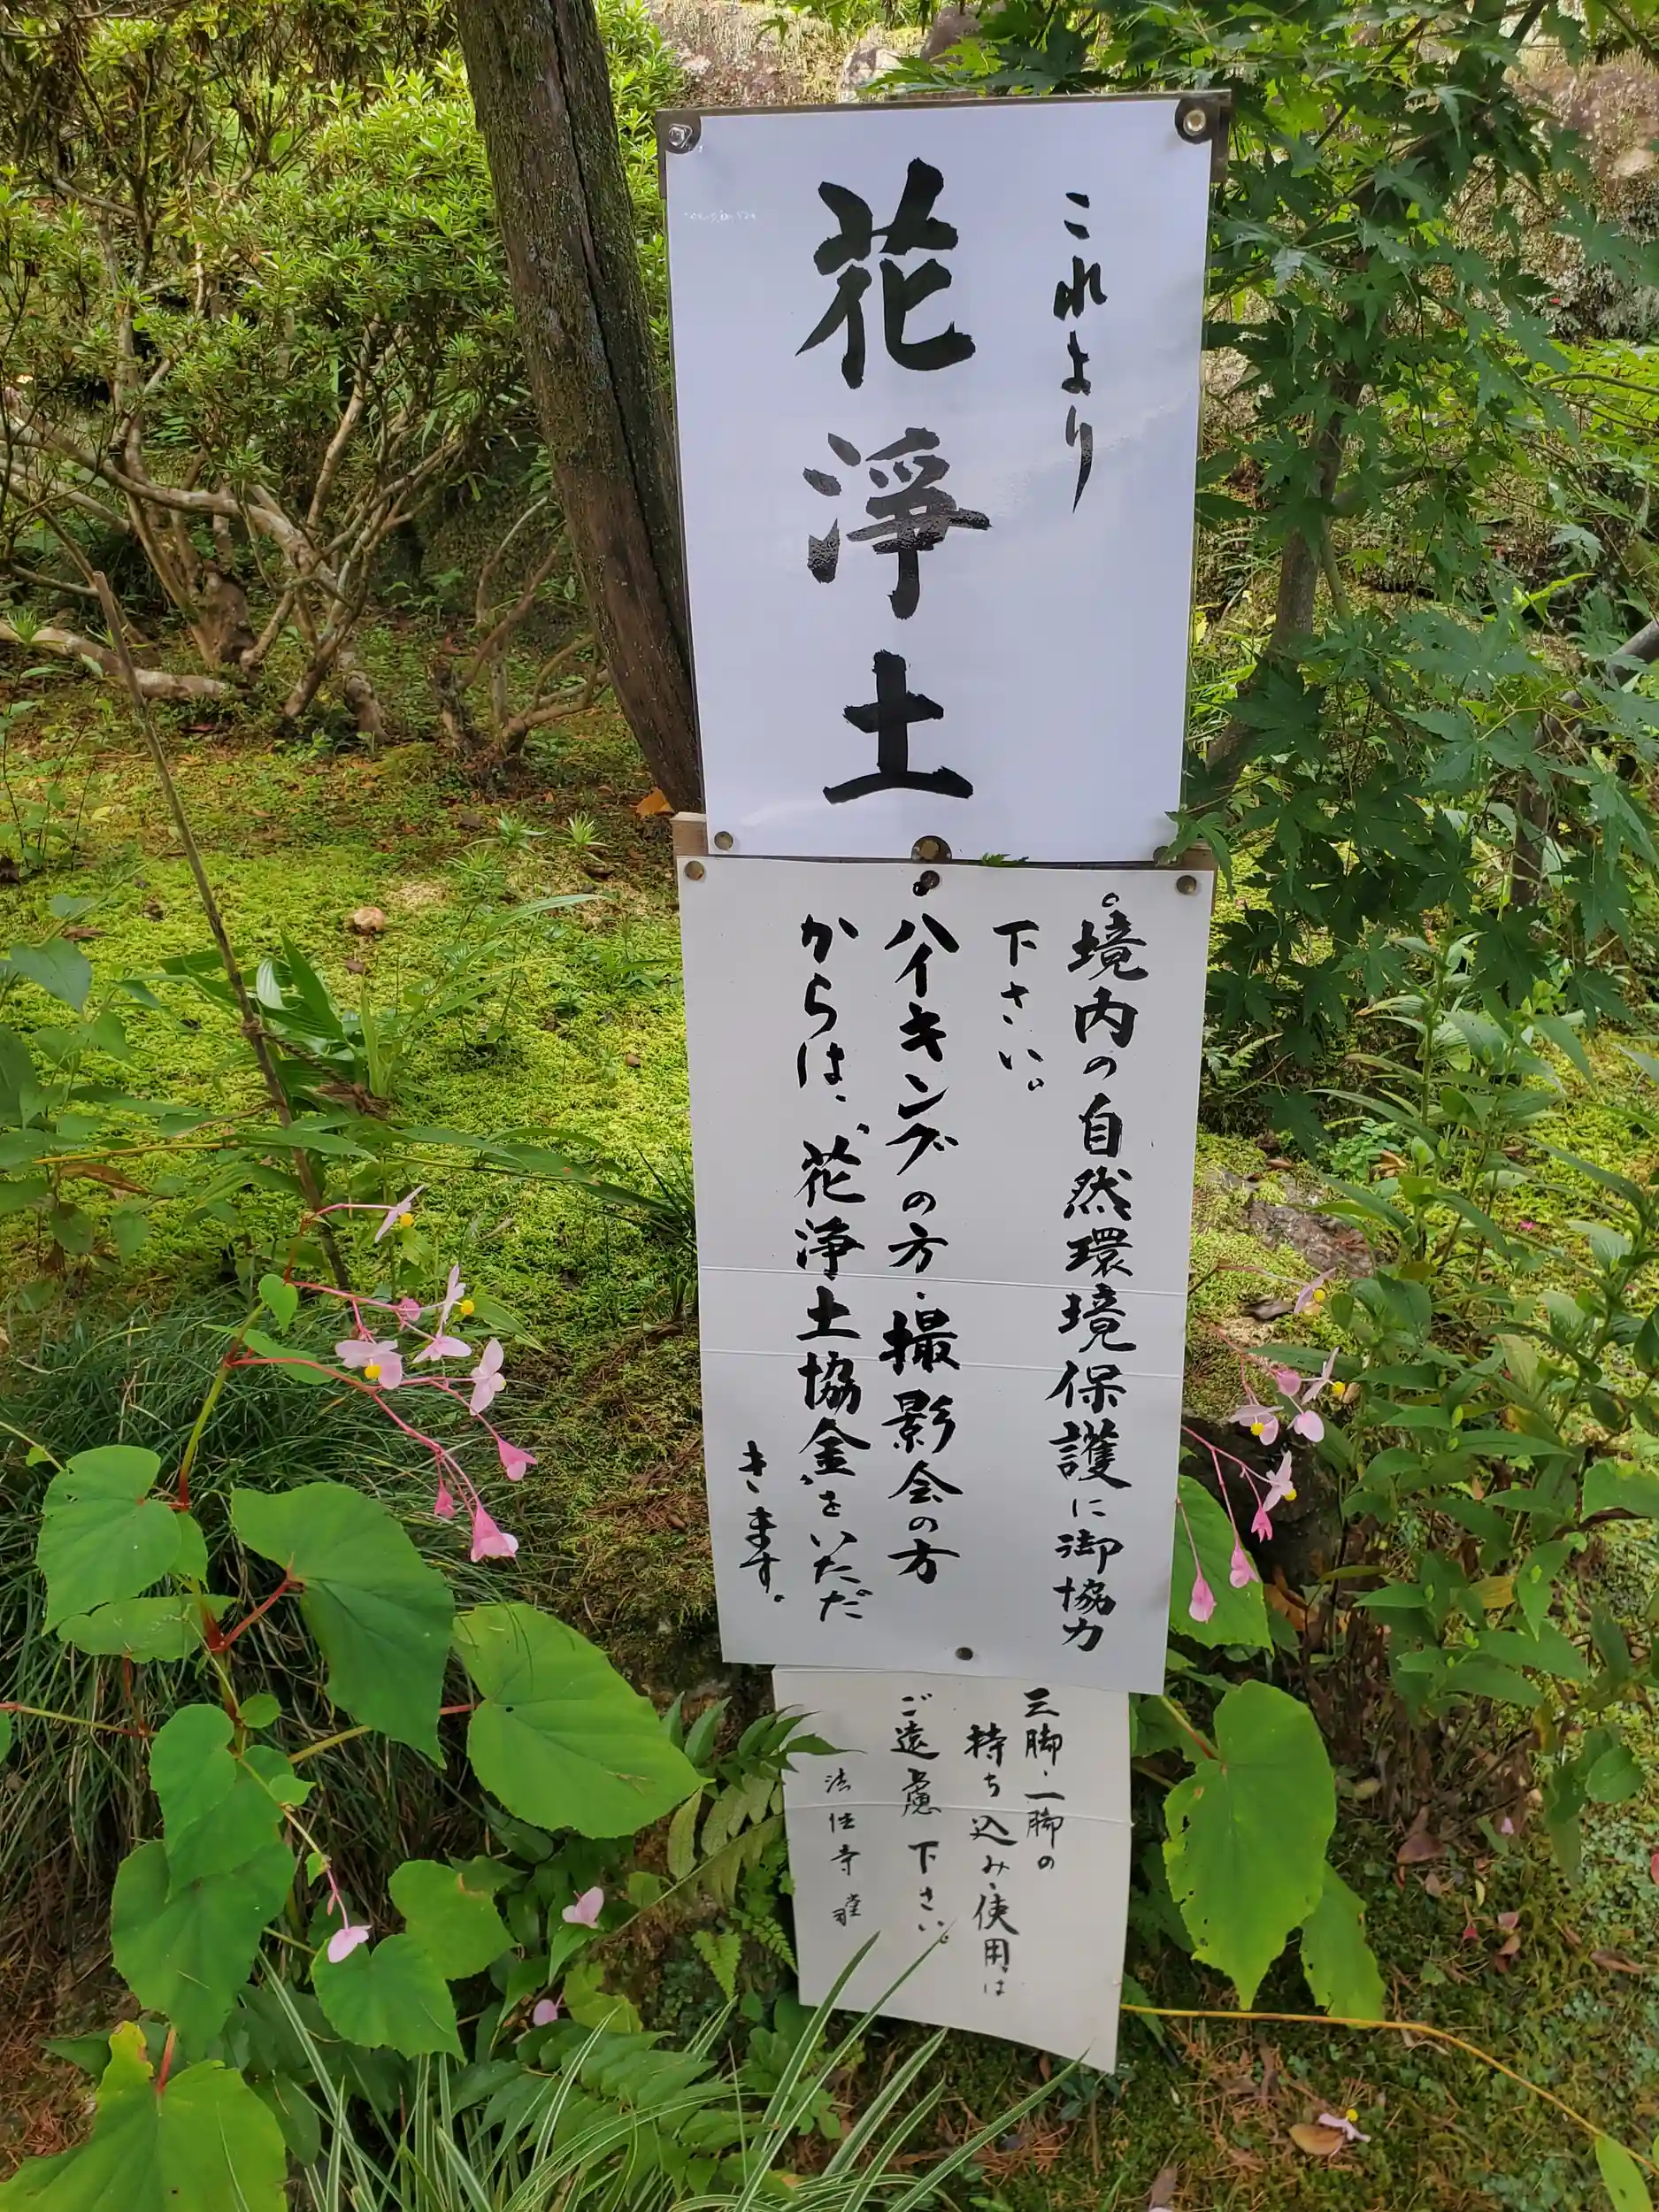 これより
花浄土
。境内の自然環境保護に御協力
下さい。
・ハイキングの方・撮影会の方
からは、〝花浄土協金〟をいただ
きます。
三脚・一脚の
持ち込み・使用は
ご遠慮下さい。